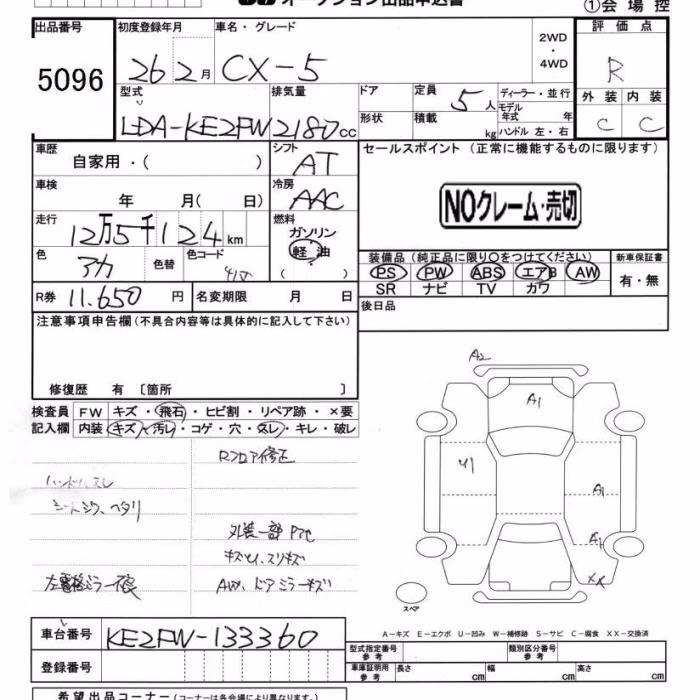 オークション出品申込書
①会場控
出品番号 初度登録年月 車名・グレード 評価点
5096 26 2月 CX-5 2WD・4WD R
型式 排気量 ドア 定員 5人 ディーラー・並行 外装 内装
LDA-KE2FW 2180cc 形状 積載 kg モデル年式 年 ハンドル 左・右 C C
車歴 シフト セールスポイント(正常に機能するものに限ります)
自家用・( ) AT
車検 冷房
年 月( 日) AAC NOクレーム・売切
走行 燃料
12万5千124km ガソリン
軽・油
( )
色 アカ 色替 色コード 41V
装備品(純正品に限り○をつけてください) 新車保証書
PS PW ABS エアB AW 有・無
SR ナビ TV カワ
R券 11.650円 名変期限 月 日 後日品
注意事項申告欄(不具合内容等は具体的に記入して下さい)
修復歴 有 〔箇所 〕
検査員 FW キズ・飛石・ヒビ割・リペア跡・×要
記入欄 内装 キズ・汚レ・コゲ・穴・スレ・キレ・破レ
Rフロア修正
ハンドルスレ
シートシワ、ヘタリ
外装一部
AW、ドアミラーキズ
A2
A1
U1
A1
A1
XX
スペア
A-キズ E-エクボ U-凹み W-補修跡 S-サビ C-腐食 XX-交換済
車台番号 KE2FW-133360
登録番号
型式指定番号 参考 類別区分番号 参考
車庫証明用 参考 長さ cm 幅 cm 高さ cm
希望出品コーナー(コーナーは各会場により異なります。)